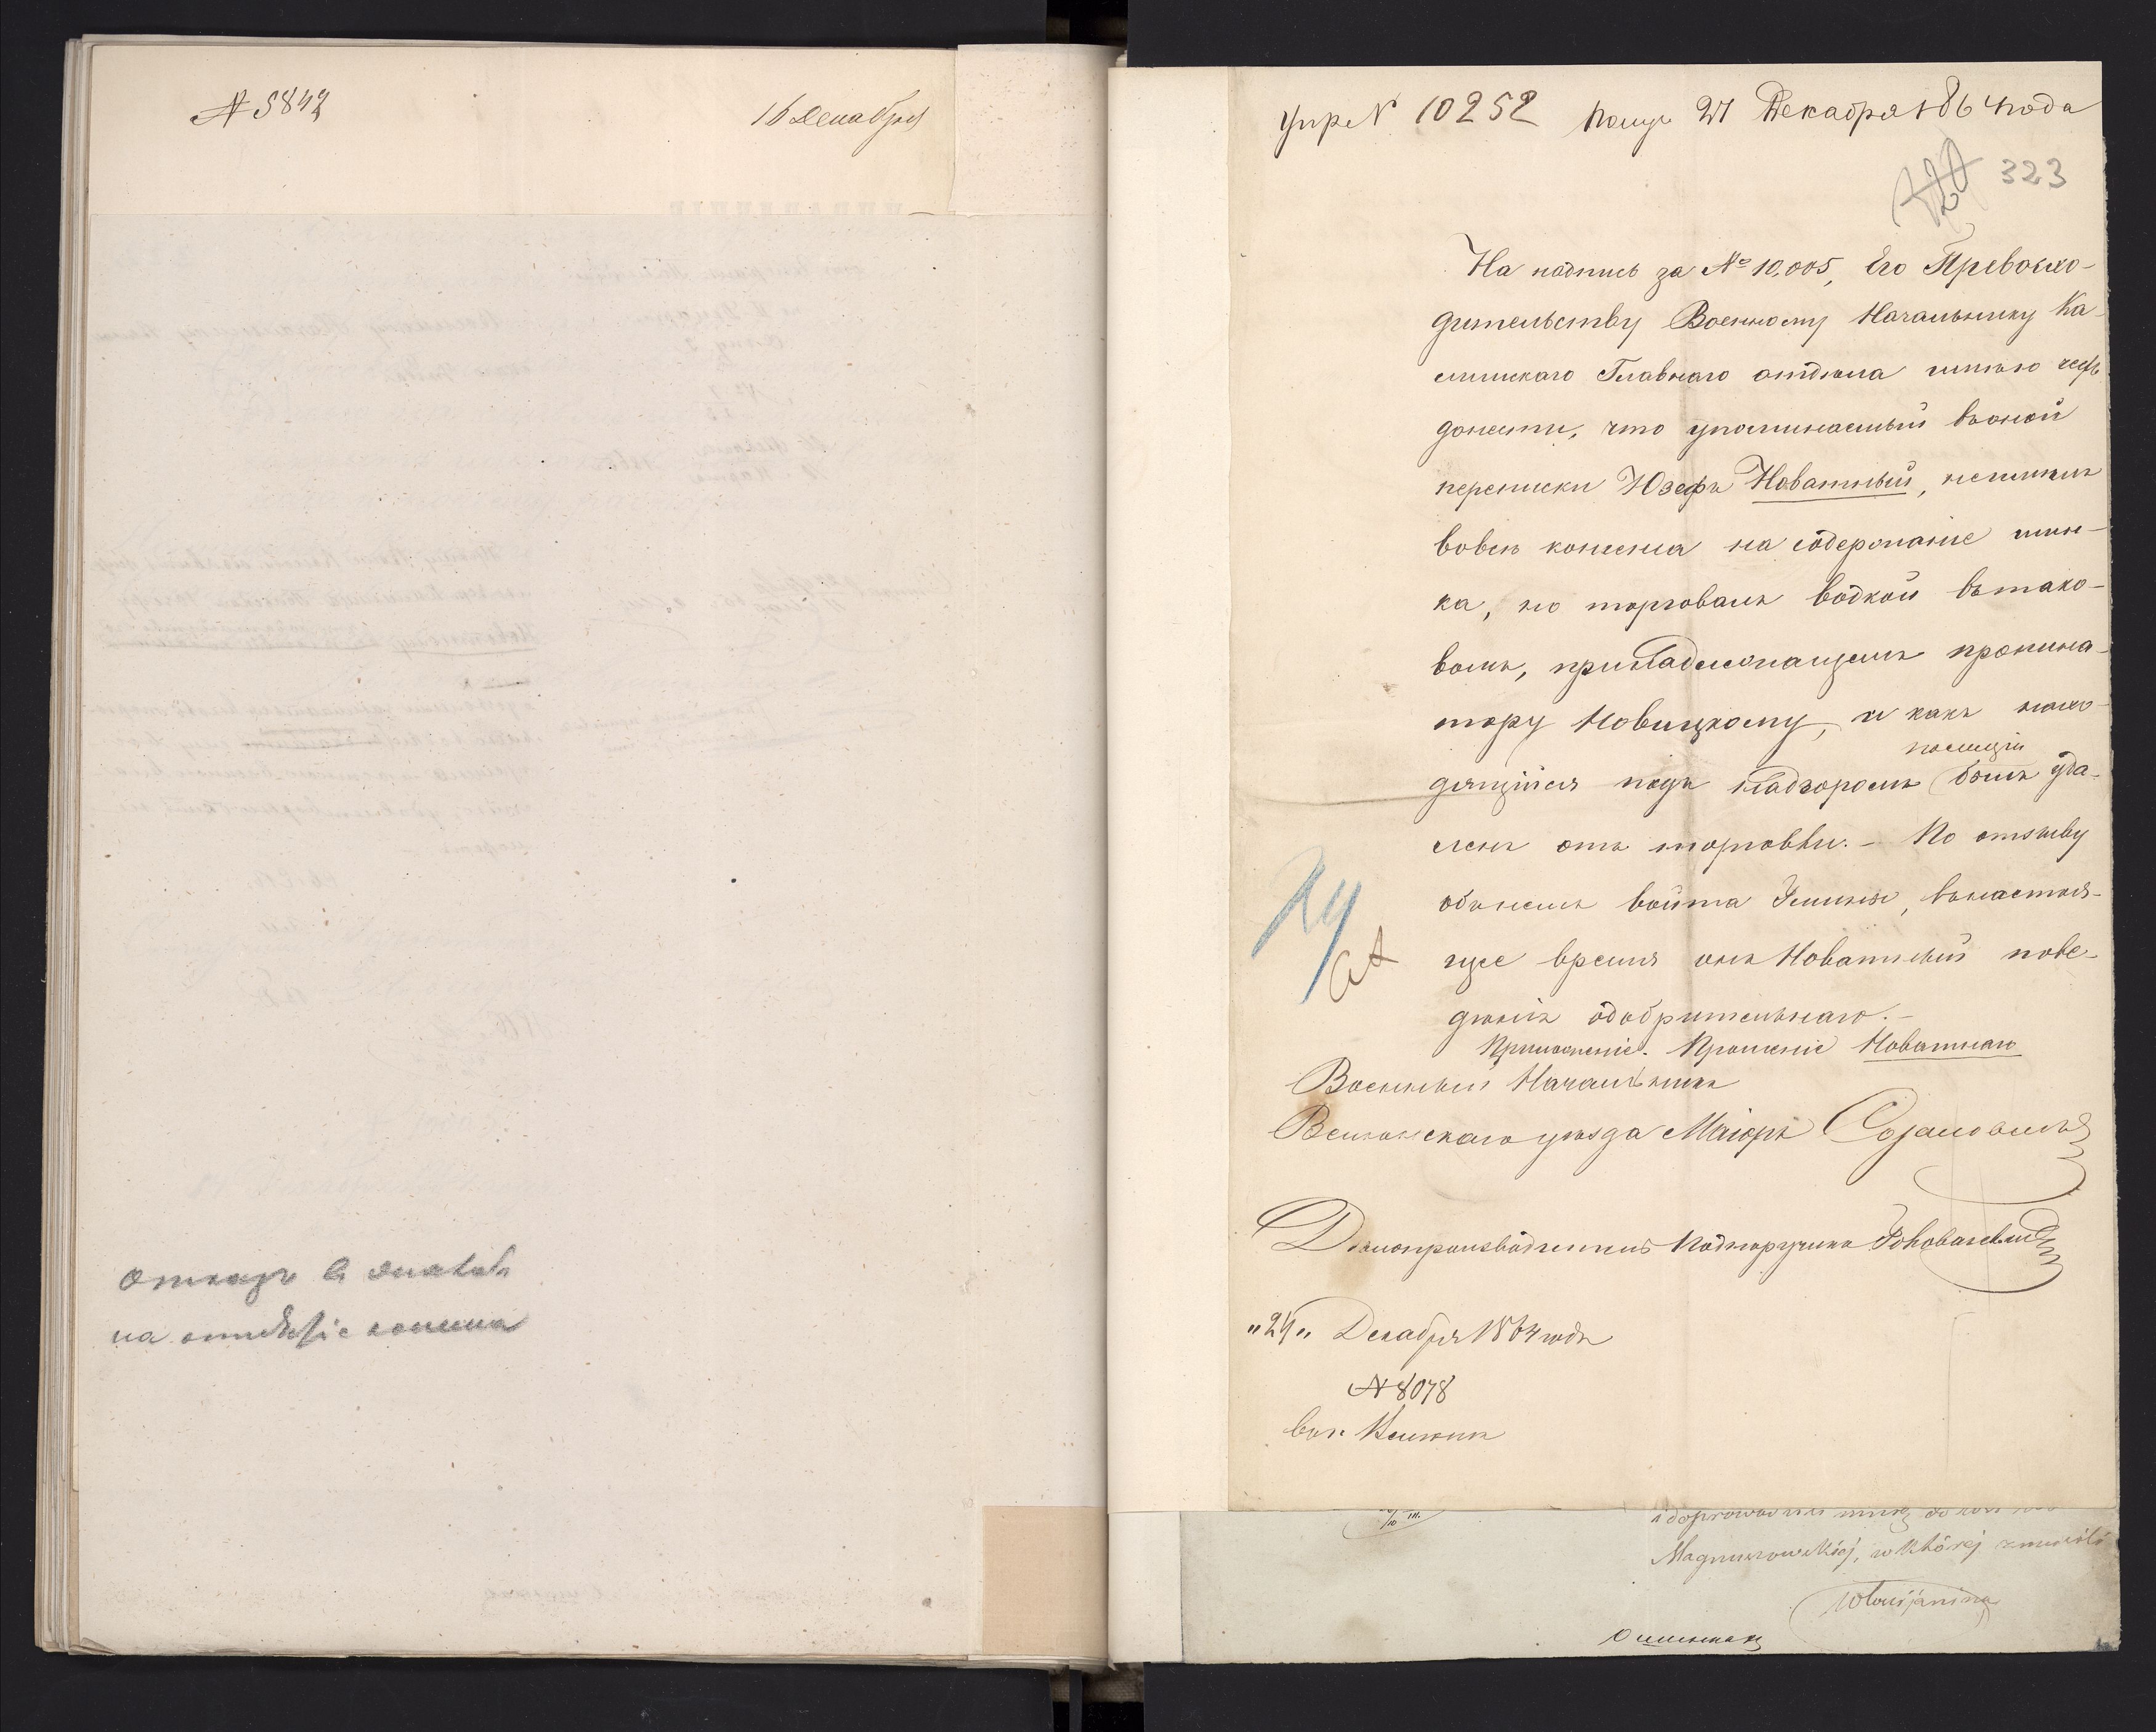 № 5842
16 Декабря
Отказъ в
на
Упр № 10252 Получ 27 Декабря 1864 года
323
На надпись за № 10,005, Его Превосхо-
дительству Военному Начальнику Ка-
лишскаго Главнаго отдѣла имѣю честь
донести, что упоминаемый въ оной
переписки Юзефъ Новатный, неимѣлъ
вовсе консенса на содержаніе шин-
ка, но торговалъ водкой въ тако-
вомъ, принадлежащемъ пропина-
тору Новицкому, и какъ нахо-
полиціи
дящійся подъ надзоромъ былъ уда-
ленъ отъ торговли. – По отзыву
объ немъ войта Гмины, въ настоя-
щее время онъ Новатный пове-
денія одобрительнаго. –
Приложеніе. Прошеніе Новатнаго
Военный Начальникъ
Велюнскаго уѣзда Маіоръ
Дѣлопроизводитель Подпоручикъ
"24" Декабря 1864 года
№ 8078
Магnuszewskiej, w której
Włościanina